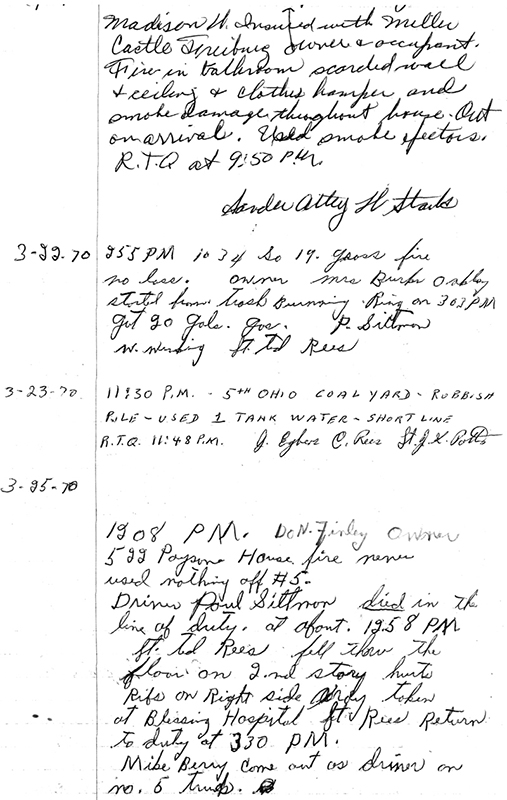 Madison U. Insured with Miller
Castle Freiburg owner & occupant.
Fire in bathroom scorded wall
& ceiling & clothes hamper and
smoke damage thoughout house. Out
on arrival. Used smoke ejectors.
R.T.Q at 9:50 P.M.
Sander Attey Lt Starks
3-22-70 255 PM 1034 So 19. grass fire
no loss. owner Mrs Oakley
started from trash Burning. Ring on 303 PM
got 20 Gals. gas. P. Sittmon
W. Lt. ted Rees
3-23-70 11:30 P.M. - 5TH OHIO COAL YARD - RUBBISH
PILE - USED 1 TANK WATER - SHORT LINE
R.T.Q. 11:48 P.M. J. Egbers C. Rees Lt. J. K. Potts
3-25-70
1208 PM. Do N. Finley Owner
522 Payson House fire never
used nothing off #5.
Driver Poul Sittmon died in the
line of duty. at about. 1258 PM
Lt. ted Rees fell thow the
floor on 2nd story hurts
Ribs on Right side taken
at Blissing Hospital Lt Rees Return
to duty at 330 PM.
Mike Berry come out as driver on
no. 5 truck.